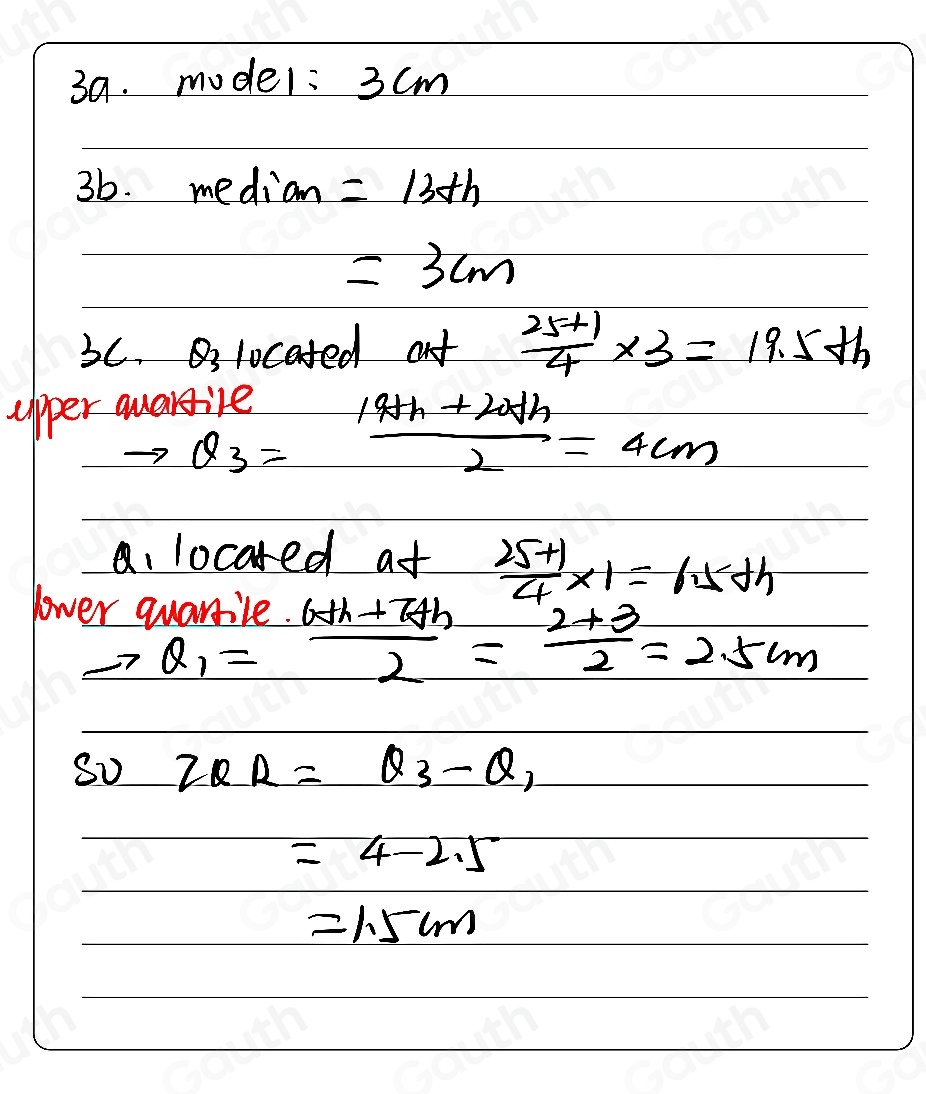 3a. model: 3cm
3b. median = 13th
= 3cm
3c. Q3 located at (25+1)/4 × 3 = 19.5th
upper quartile
→ Q3 = (19th + 20th)/2 = 4cm
Q1 located at (25+1)/4 × 1 = 6.5th
lower quartile.
→ Q1 = (6th + 7th)/2 = (2+3)/2 = 2.5cm
SO IQR = Q3 - Q1
= 4 - 2.5
= 1.5cm
Gauth